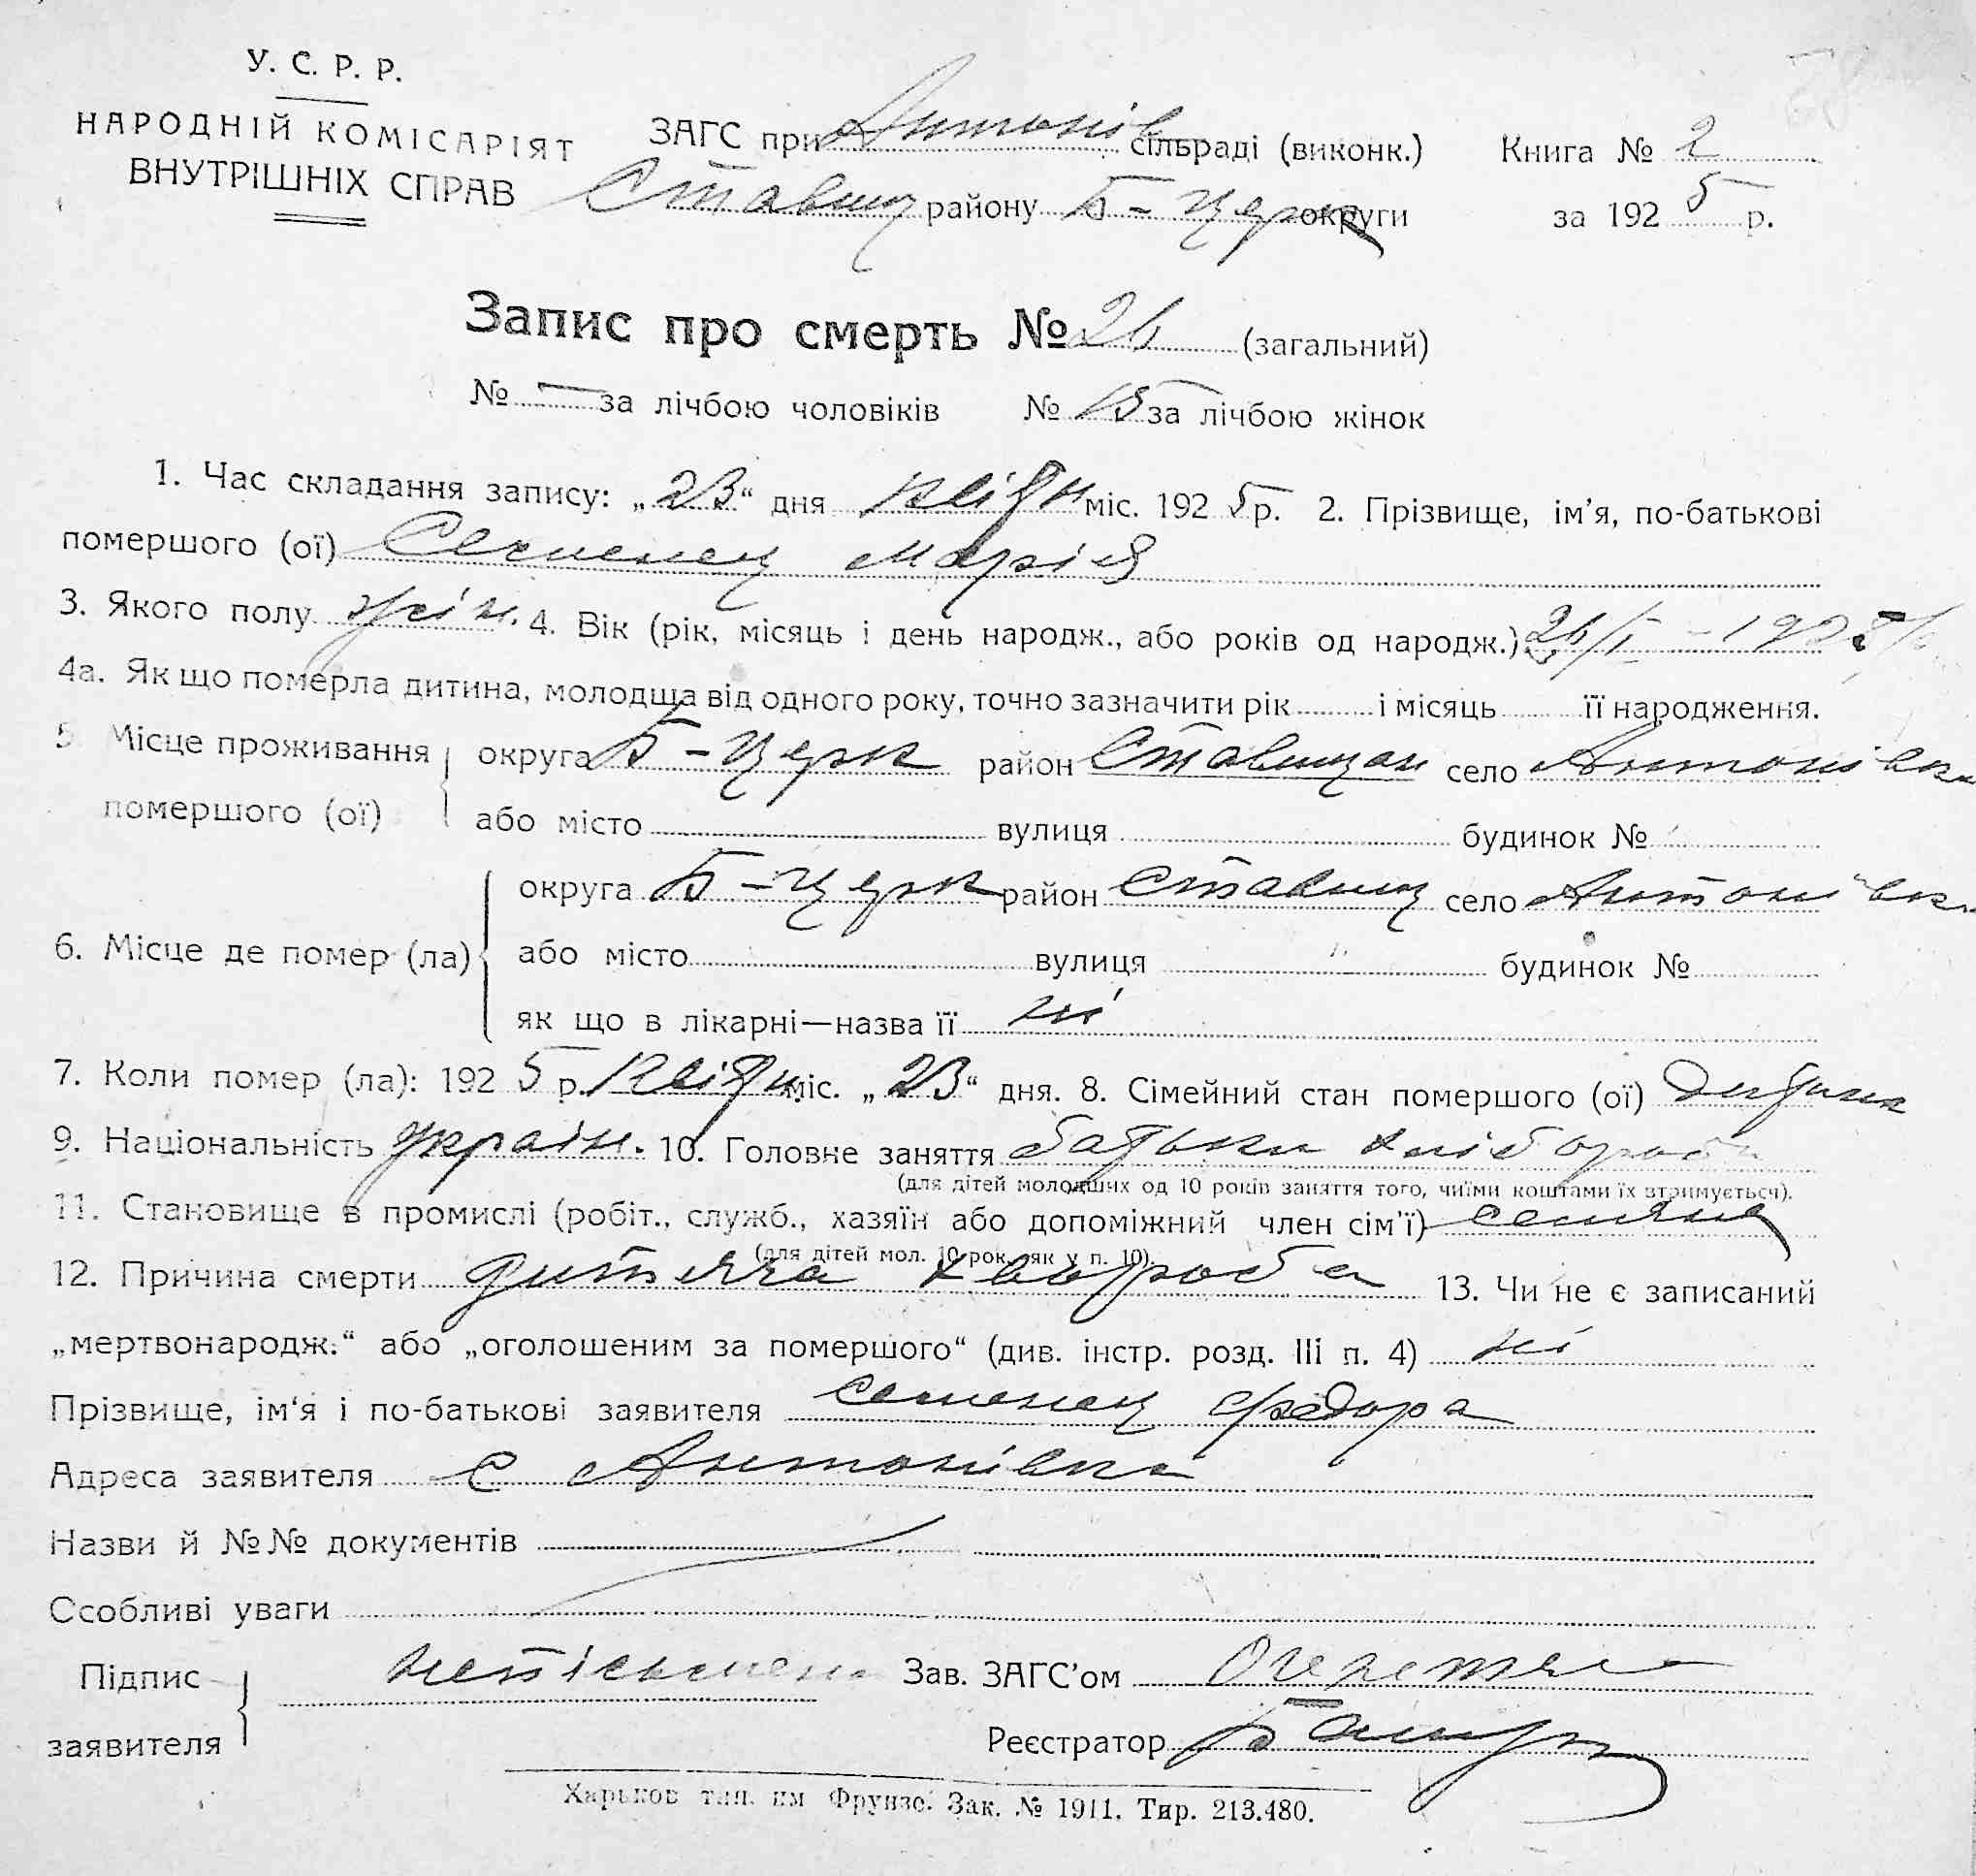 У. С. Р. Р.
НАРОДНІЙ КОМІСАРІЯТ
ВНУТРІШНІХ СПРАВ
ЗАГС при Антонів сільраді (виконк.) Книга № 2
Ставищ району Б-Церк округи за 1925 р.
Запис про смерть № 26 (загальний)
№ — за лічбою чоловіків № 15 за лічбою жінок
1. Час складання запису: „23“ дня квітн міс. 1925 р. 2. Прізвище, ім'я, по-батькові
помершого (ої) Семенец Марія
3. Якого полу жін. 4. Вік (рік, місяць і день народж., або років од народж.) 26/I - 192
4а. Як що померла дитина, молодща від одного року, точно зазначити рік і місяць її народження.
5. Місце проживання округа Б-Церк район Ставищан село Антонівка
помершого (ої) або місто вулиця будинок №
округа Б-Церк район Ставищ село Антонівка
6. Місце де помер (ла) або місто вулиця будинок №
як що в лікарні—назва її ні
7. Коли помер (ла): 1925 р. квітн міс. „23“ дня. 8. Сімейний стан помершого (ої) дитина
9. Національність україн. 10. Головне заняття батьки хлібороби
(для дітей молодших од 10 років заняття того, чиїми коштами їх втримується).
11. Становище в промислі (робіт., служб., хазяїн або допоміжний член сім'ї)
(для дітей мол. 10 рок. як у п. 10).
12. Причина смерти дитяча хвороба 13. Чи не є записаний
„мертвонародж.“ або „оголошеним за помершого“ (див. інстр. розд. III п. 4) ні
Прізвище, ім'я і по-батькові заявителя Семенец Федора
Адреса заявителя с Антонівка
Назви й №№ документів
Особливі уваги
Підпис неписьмена Зав. ЗАГС'ом
заявителя Реєстратор
Харьков тип. им Фрунзе. Зак. № 1911. Тир. 213.480.